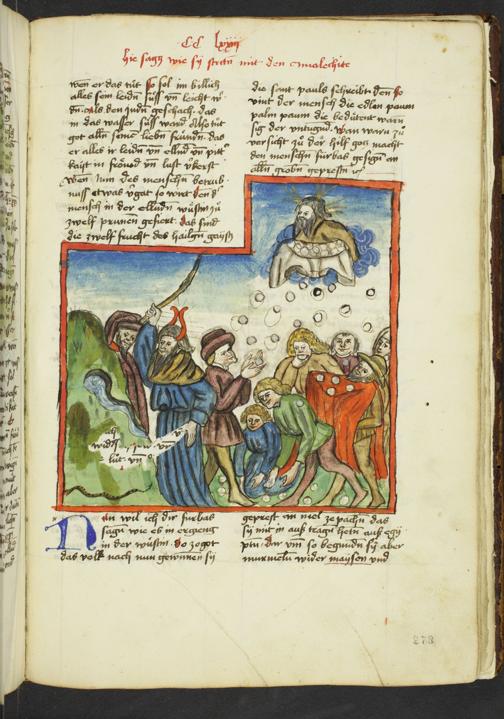 CC Lxxiiii
hie sagt wie sy striten mit den Amalechite
wen er das tüt so sol im billich
alles sein leiden süss vn leicht w
dn. als den judn geschach das
in das wasser süss ward Also tüt
got alln seinen liebn freündn. das
er alles ir leidn vn ellend vn pitt
kait in freüd vn lust
wen nun des menschn
nuss etwas so wirt den d
mensch in der ellendn wüstn zu
zwelf prunnen gefiert. das sind
die zwelf frucht des hailgn gaist
die sant pauls schreibt. den so
vint der mensch die edlen paum
palm paum die bedütent
sig der vntugnd. wan
versicht zu der hilf gots macht
den menschn fürbas gesign an
alln grobn geprestn
ich
lüt vn
Nun wil ich dir fürbas
sagn wie es in ergieng
in der wüstn. do zogot
das volk nach nun gewunnen sy
geprest in viel ze pachn das
sy mit in auss tragn hetn auss egy
ptn. dar vm so begundn sy aber
murmeln wider moysen vnd
273